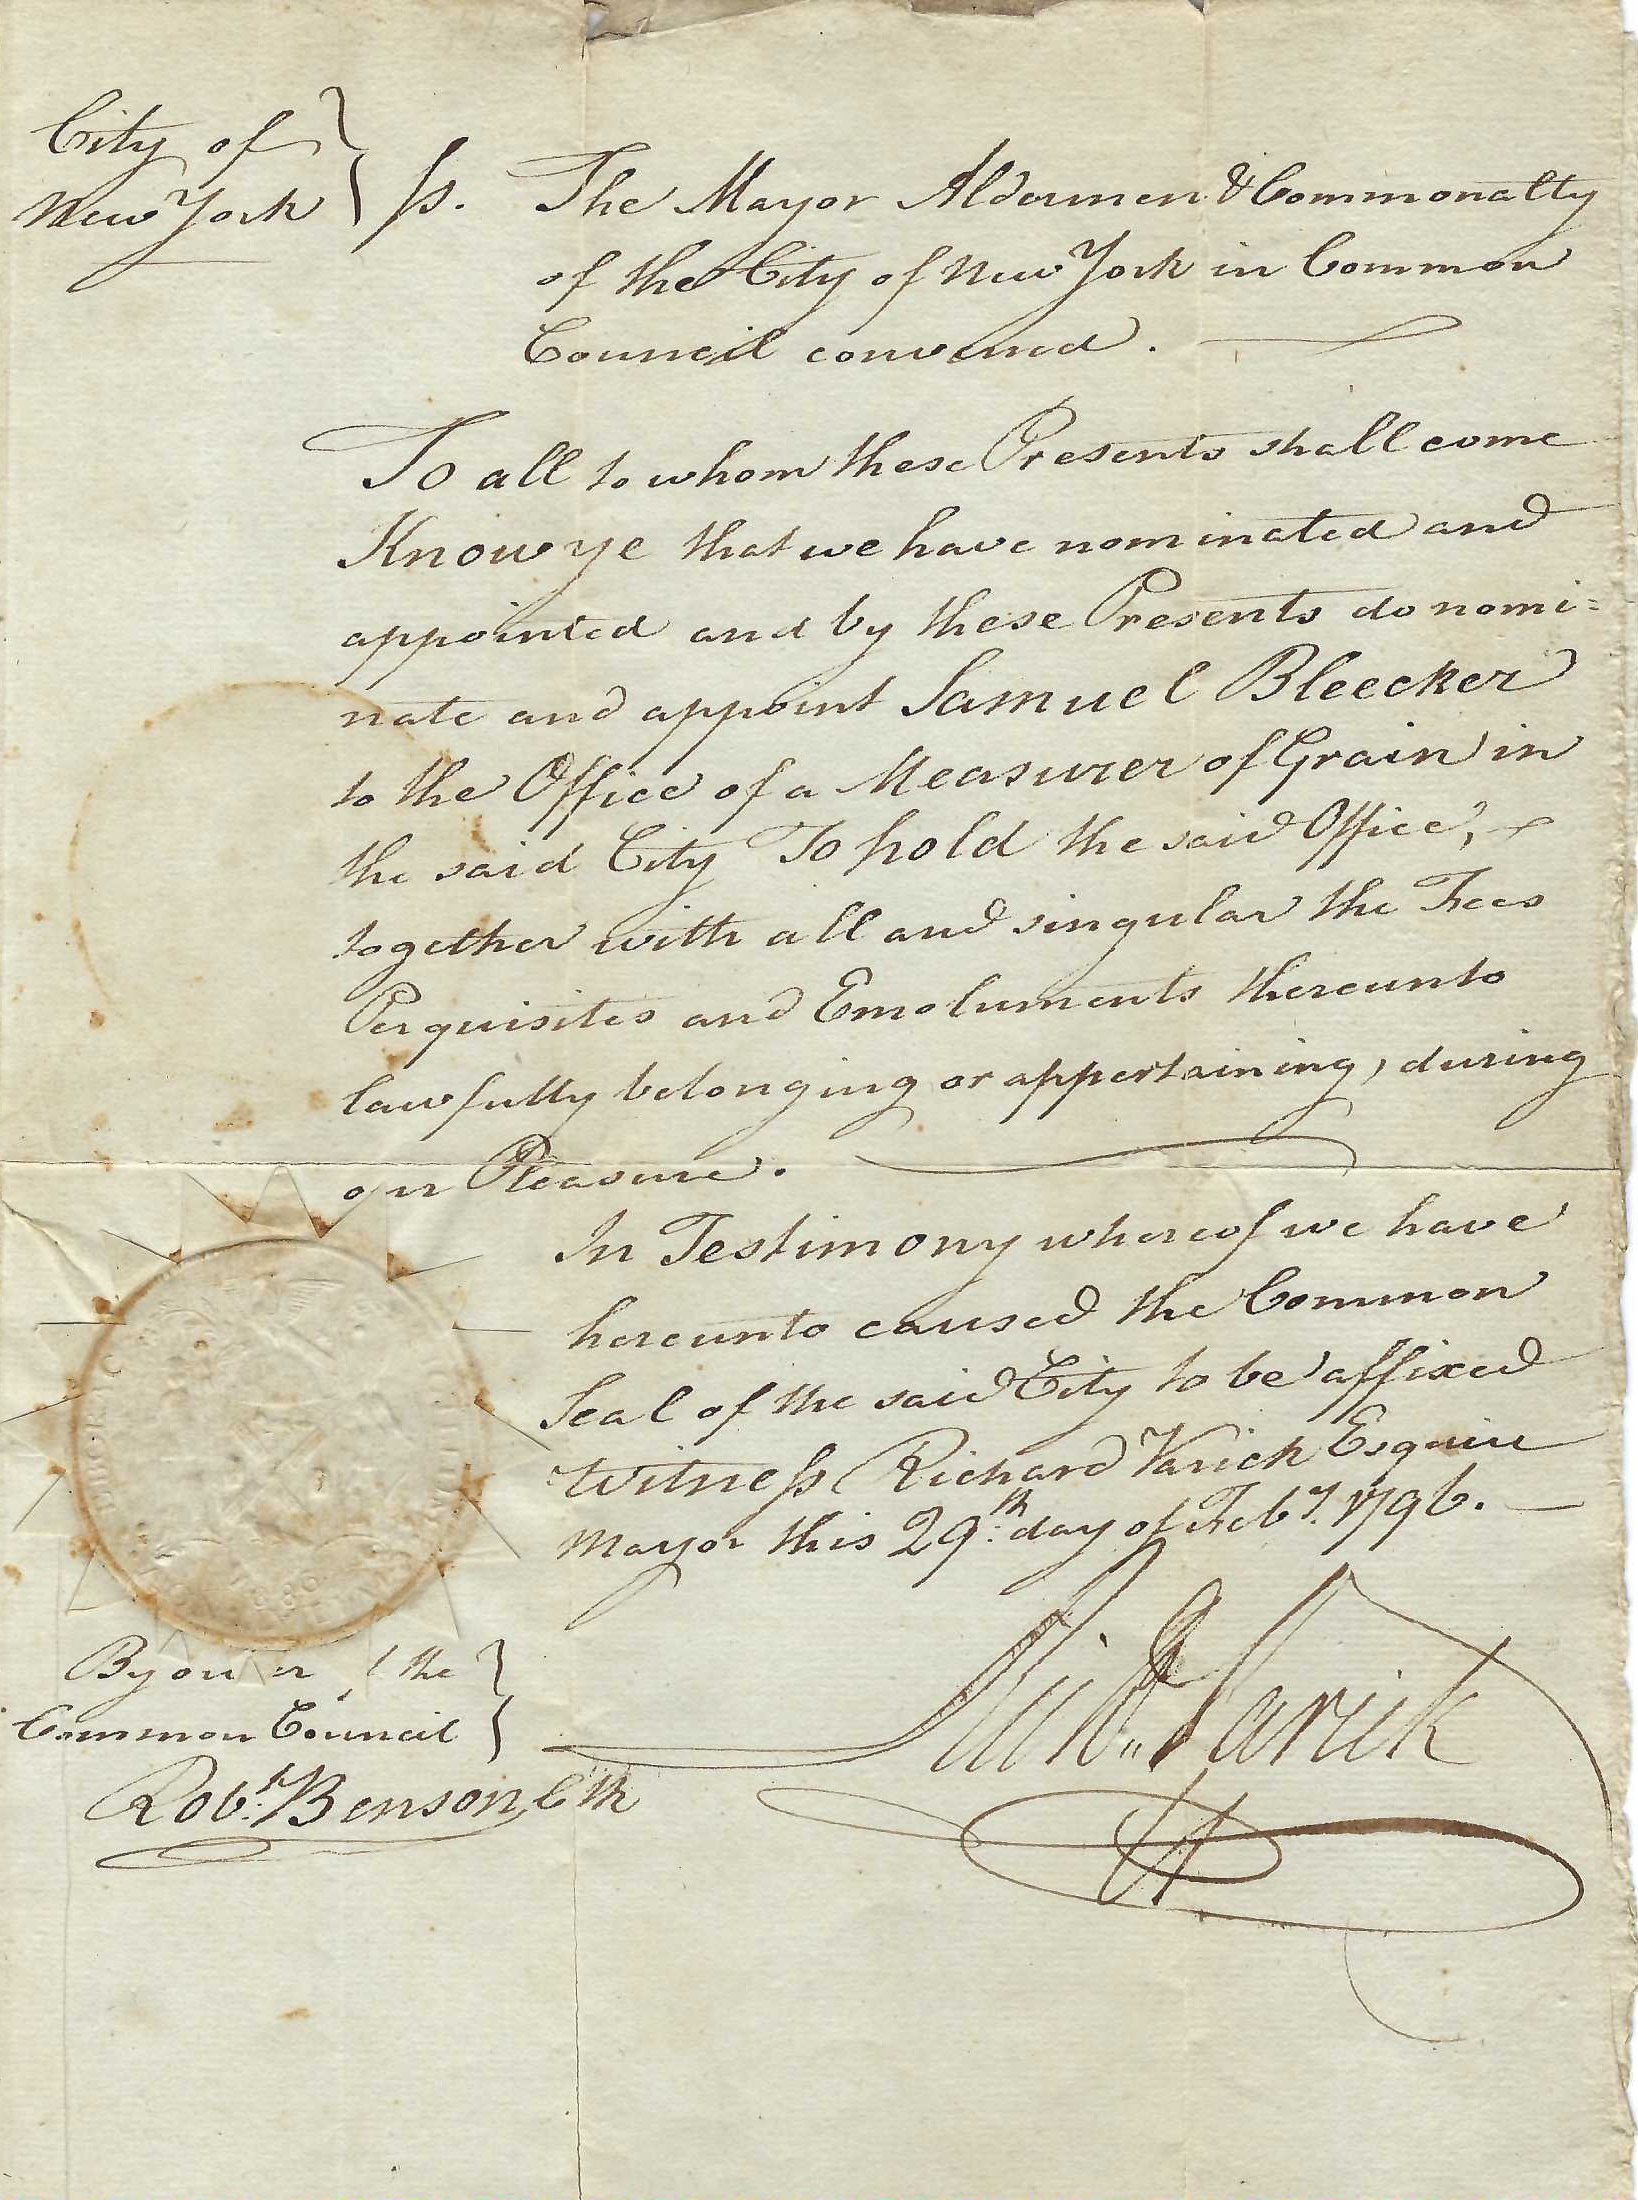 City of
New York } ss.
The Mayor Aldermen & Commonalty
of the City of New York in Common
Council convened.
To all to whom these Presents shall come
Know ye that we have nominated and
appointed and by these Presents do nomi=
nate and appoint Samuel Bleecker
to the Office of a Measurer of Grain in
the said City To hold the said Office,
together with all and singular the Fees
Perquisites and Emoluments thereunto
lawfully belonging or appertaining, during
our Pleasure.
In Testimony whereof we have
hereunto caused the Common
Seal of the said City to be affixed
Witness Richard Varick Esquire
Mayor this 29.th day of Feby. 1796.
Richd. Varick
1686
By the
Common Council
Robt. Benson Clk